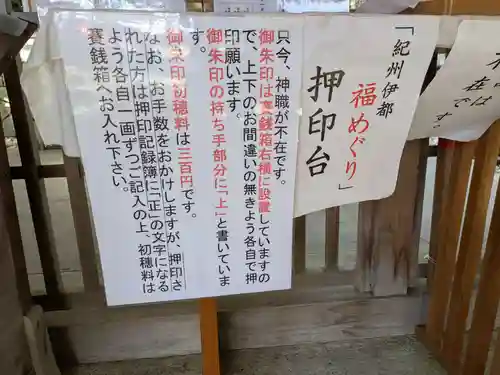 「紀州伊都
福めぐり」
押印台
只今、神職が不在です。
御朱印は賽銭箱右横に設置していますの
で、上下のお間違いの無きよう各自で押
印願います。
御朱印の持ち手部分に「上」と書いていま
す。
御朱印初穂料は三百円です。
なお、お手数をおかけしますが、押印さ
れた方は押印記録簿に「正」の文字になる
よう各自一画ずつご記入の上、初穂料は
賽銭箱へお入れ下さい。